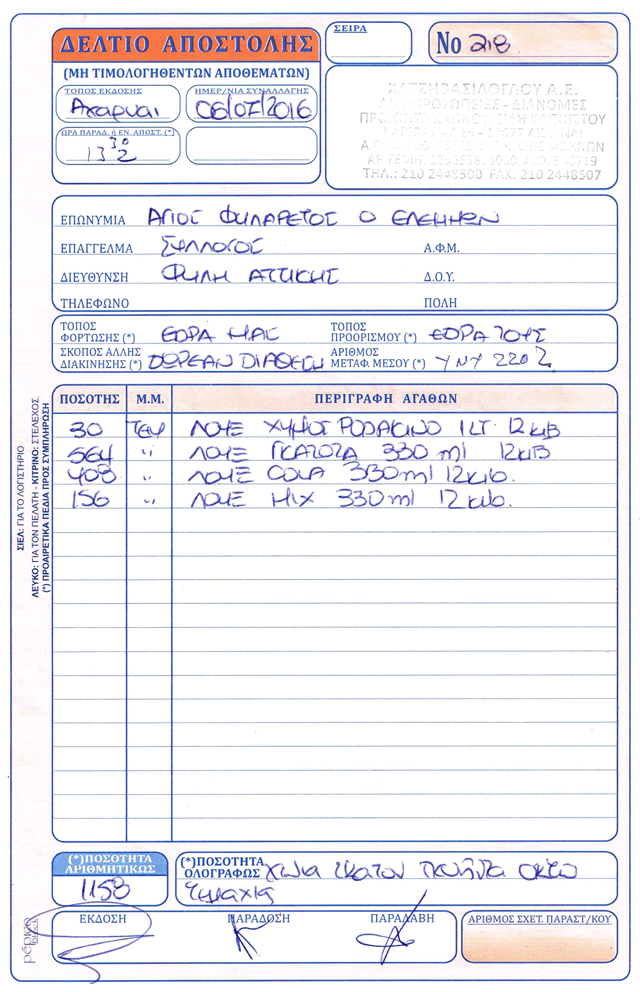 ΔΕΛΤΙΟ ΑΠΟΣΤΟΛΗΣ
(ΜΗ ΤΙΜΟΛΟΓΗΘΕΝΤΩΝ ΑΠΟΘΕΜΑΤΩΝ)
ΣΕΙΡΑ
No 218
ΤΟΠΟΣ ΕΚΔΟΣΗΣ
Αχαρναι
ΗΜΕΡ/ΝΙΑ ΣΥΝΑΛΛΑΓΗΣ
06/07/2016
ΩΡΑ ΠΑΡΑΔ. ή ΕΝ. ΑΠΟΣΤ. (*)
13 30
ΧΑΤΖΗΒΑΣΙΛΟΓΛΟΥ Α.Ε.
ΑΝΤΙΠΡΟΣΩΠΕΙΕΣ - ΔΙΑΝΟΜΕΣ
ΠΡΟΪΟΝΤΑ ΚΑΠΝΟΥ ΕΙΔΗ ΚΑΠΝΙΣΤΟΥ
ΤΗΛ.: 210 2448500 FAX: 210 2448507
ΕΠΩΝΥΜΙΑ ΑΓΙΟΣ ΦΙΛΑΡΕΤΟΣ Ο ΕΛΕΗΜΩΝ
ΕΠΑΓΓΕΛΜΑ ΣΥΛΛΟΓΟΣ Α.Φ.Μ.
ΔΙΕΥΘΥΝΣΗ ΦΥΛΗ ΑΤΤΙΚΗΣ Δ.Ο.Υ.
ΤΗΛΕΦΩΝΟ ΠΟΛΗ
ΤΟΠΟΣ ΦΟΡΤΩΣΗΣ (*) ΕΔΡΑ ΜΑΣ ΤΟΠΟΣ ΠΡΟΟΡΙΣΜΟΥ (*) ΕΔΡΑ ΤΟΥΣ
ΣΚΟΠΟΣ ΑΛΛΗΣ ΔΙΑΚΙΝΗΣΗΣ (*) ΔΩΡΕΑΝ ΔΙΑΘΕΣΗ ΑΡΙΘΜΟΣ ΜΕΤΑΦ. ΜΕΣΟΥ (*) ΥΝΥ 2202
ΠΟΣΟΤΗΣ Μ.Μ. ΠΕΡΙΓΡΑΦΗ ΑΓΑΘΩΝ
30 ΤΕΜ ΛΟΥΞ ΧΥΜΟΣ ΡΟΔΑΚΙΝΟ 1 LT. 12κιβ
564 " ΛΟΥΞ ΓΚΑΖΟΖΑ 330 ml 12κιβ
408 " ΛΟΥΞ COLA 330ml 12κιβ.
156 " ΛΟΥΞ ΜΙΧ 330ml 12κιβ.
ΣΙΕΛ: ΓΙΑ ΤΟ ΛΟΓΙΣΤΗΡΙΟ
ΛΕΥΚΟ: ΓΙΑ ΤΟΝ ΠΕΛΑΤΗ - ΚΙΤΡΙΝΟ: ΣΤΕΛΕΧΟΣ
(*) ΠΡΟΑΙΡΕΤΙΚΑ ΠΕΔΙΑ ΠΡΟΣ ΣΥΜΠΛΗΡΩΣΗ
(*)ΠΟΣΟΤΗΤΑ ΑΡΙΘΜΗΤΙΚΩΣ
1158
(*)ΠΟΣΟΤΗΤΑ ΟΛΟΓΡΑΦΩΣ Χιλια εκατον πενήντα οκτώ
τεμαχια
ΕΚΔΟΣΗ ΠΑΡΑΔΟΣΗ ΠΑΡΑΛΑΒΗ ΑΡΙΘΜΟΣ ΣΧΕΤ. ΠΑΡΑΣΤ/ΚΟΥ